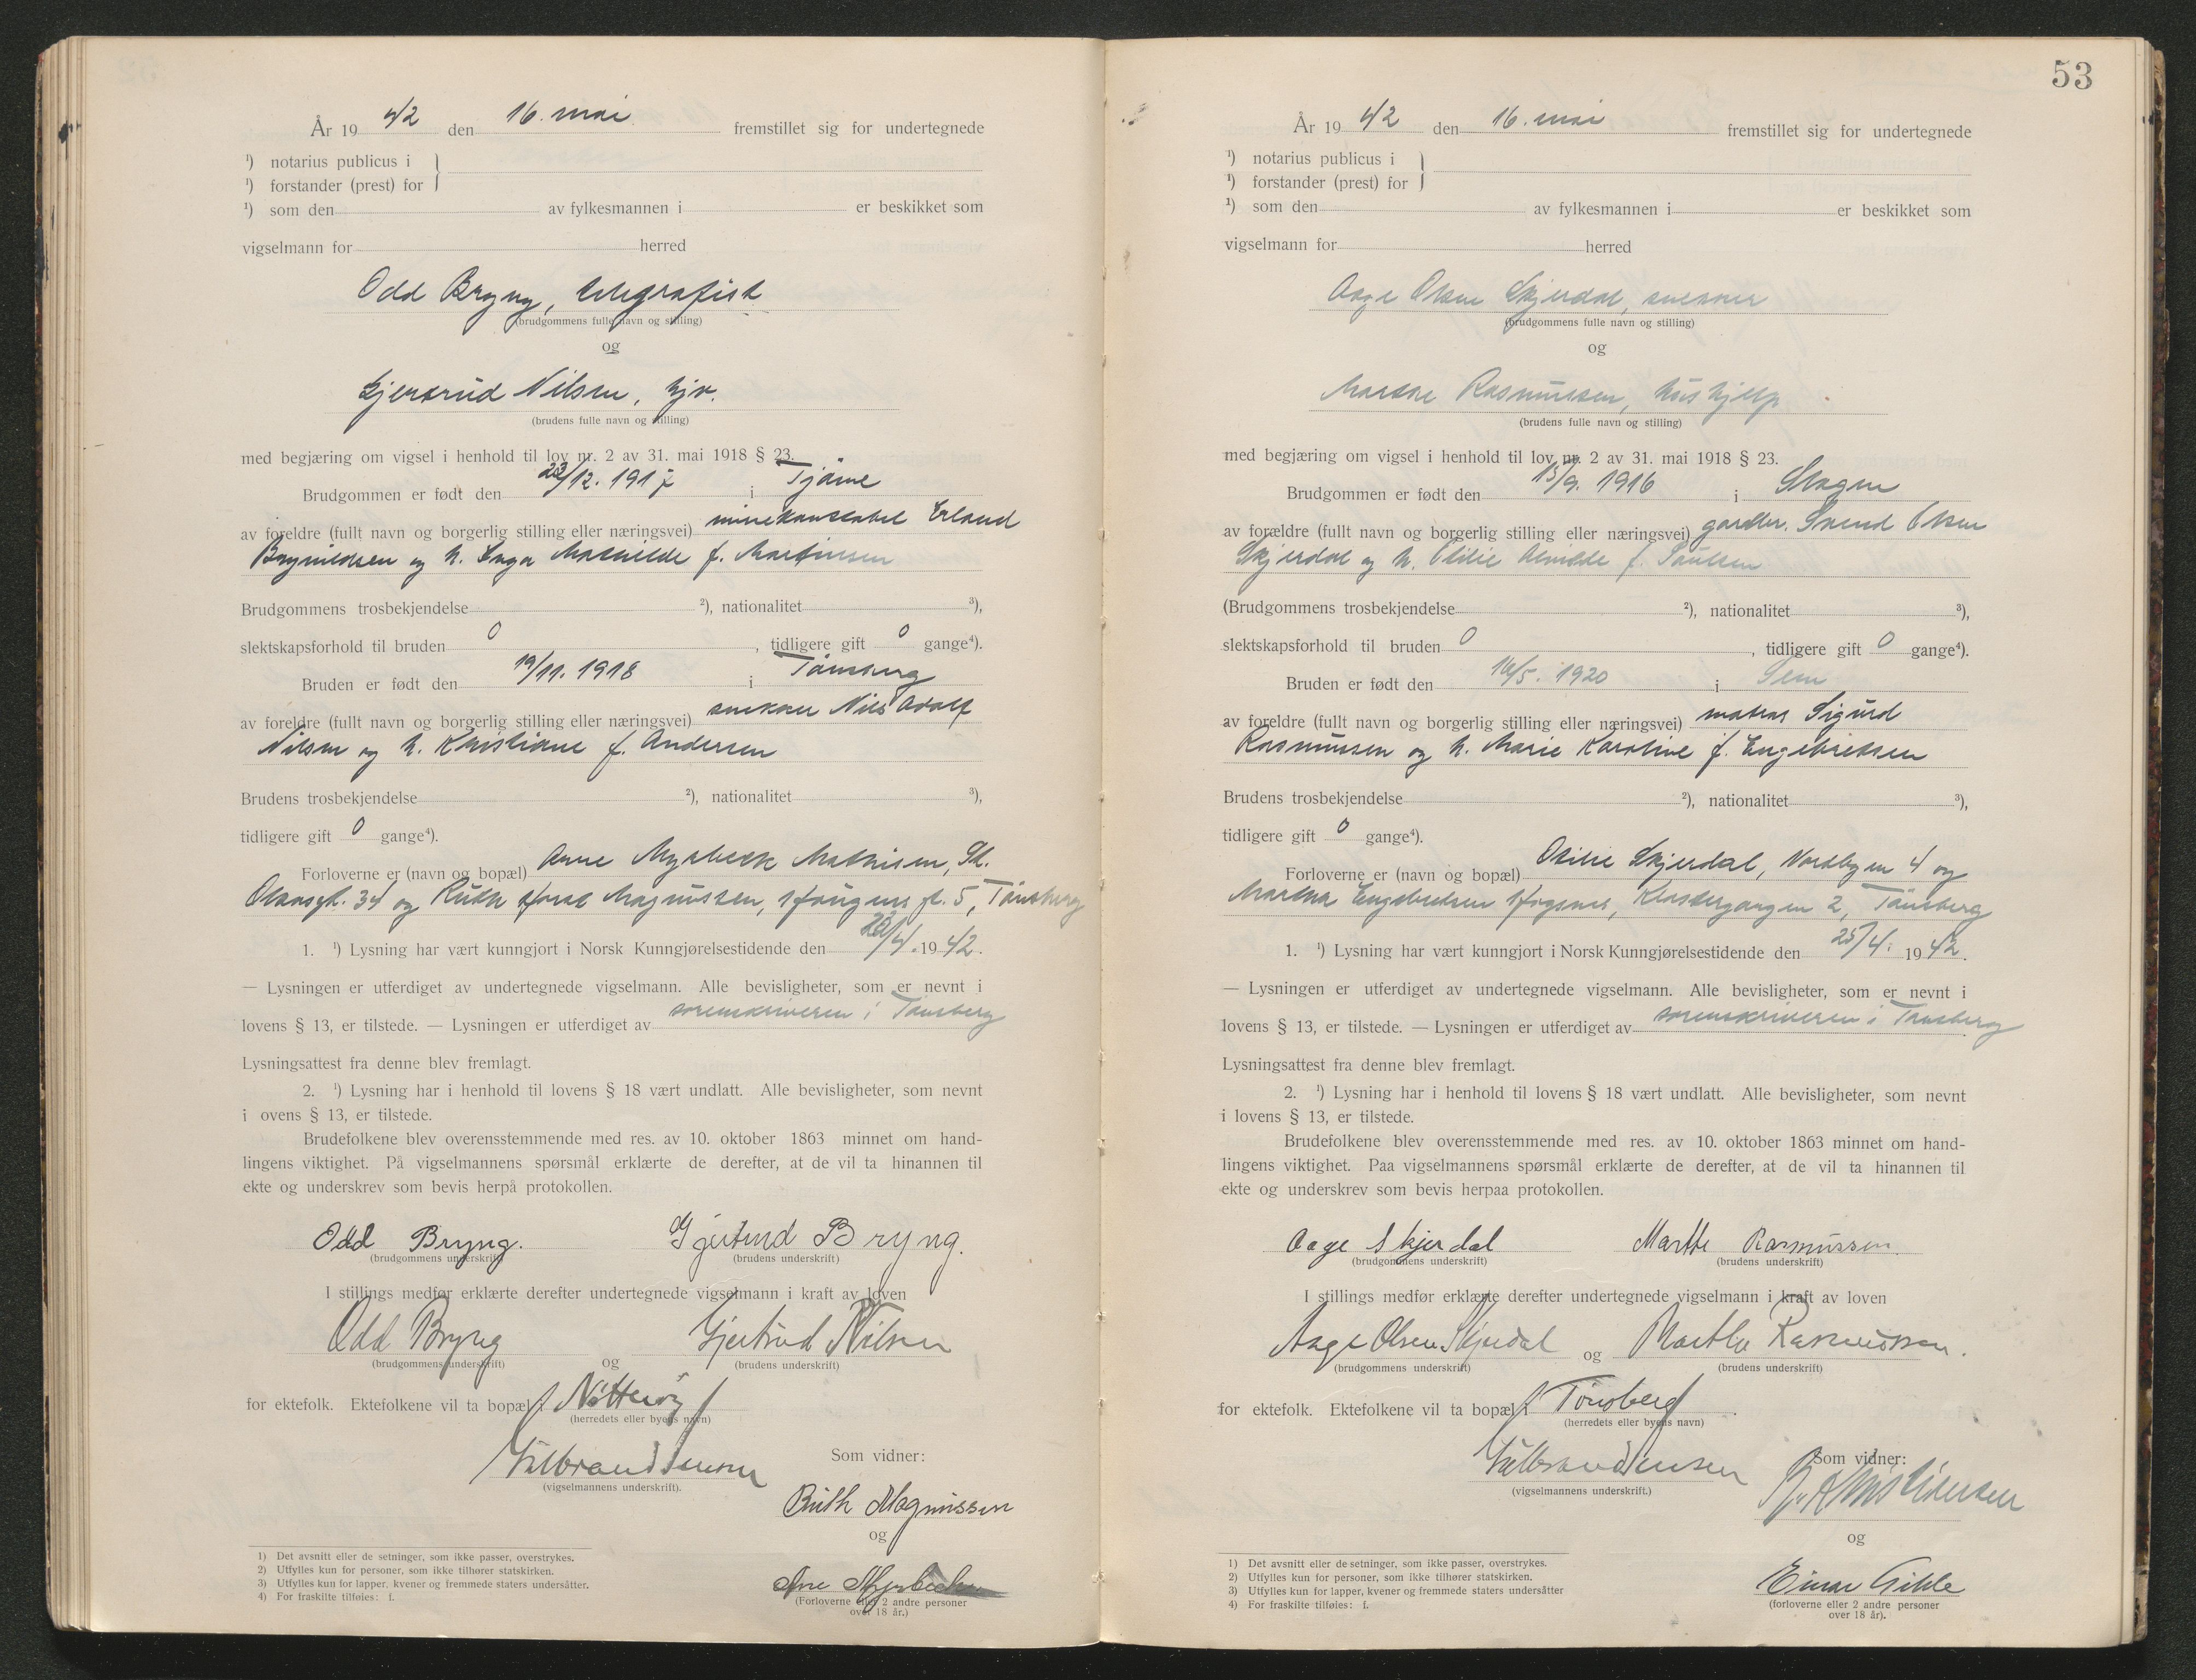 År 19 42 den 16. mai fremstillet sig for undertegnede
¹) notarius publicus i
¹) forstander (prest) for
¹) som den av fylkesmannen i er beskikket som
vigselmann for herred
Odd Bryng, telegrafist
(brudgommens fulle navn og stilling)
og
Gjertrud Nilsen, hjv.
(brudens fulle navn og stilling)
med begjæring om vigsel i henhold til lov nr. 2 av 31. mai 1918 § 23.
Brudgommen er født den 23/12. 1917 i Tjøme
av foreldre (fullt navn og borgerlig stilling eller næringsvei) minekonstabel Erland
Brynildsen og h. Inga Mathilde f. Martinsen
Brudgommens trosbekjendelse ²), nationalitet ³),
slektskapsforhold til bruden 0, tidligere gift 0 gange⁴).
Bruden er født den 19/11. 1918 i Tønsberg
av foreldre (fullt navn og borgerlig stilling eller næringsvei) snekker Nils Adolf
Nilsen og h. Kristiane f. Andersen
Brudens trosbekjendelse ²), nationalitet ³),
tidligere gift 0 gange⁴).
Forloverne er (navn og bopæl) Arne Myrbeck Mathisen, St.
Olavsgt. 34 og Ruth Magnussen, gt. 5, Tønsberg
1. ¹) Lysning har vært kunngjort i Norsk Kunngjørelsestidende den /4. 19 42.
— Lysningen er utferdiget av undertegnede vigselmann. Alle bevisligheter, som er nevnt i
lovens § 13, er tilstede. — Lysningen er utferdiget av sorenskriveren i Tønsberg
Lysningsattest fra denne blev fremlagt.
2. ¹) Lysning har i henhold til lovens § 18 vært undlatt. Alle bevisligheter, som nevnt
i ovens § 13, er tilstede.
Brudefolkene blev overensstemmende med res. av 10. oktober 1863 minnet om hand-
lingens viktighet. På vigselmannens spørsmål erklærte de derefter, at de vil ta hinannen til
ekte og underskrev som bevis herpå protokollen.
Odd Bryng. Gjertrud Bryng.
(brudgommens underskrift) (brudens underskrift)
I stillings medfør erklærte derefter undertegnede vigselmann i kraft av loven
Odd Bryng og Gjertrud Nilsen
(brudgommens underskrift) (brudens underskrift)
for ektefolk. Ektefolkene vil ta bopæl i Nøtterøy
(herredets eller byens navn)
(vigselmannens underskrift).
Som vidner:
Ruth Magnussen
og
Arne
(Forloverne eller 2 andre personer
over 18 år.)
1) Det avsnitt eller de setninger, som ikke passer, overstrykes.
2) Utfylles kun for personer, som ikke tilhører statskirken.
3) Utfylles kun for lapper, kvener og fremmede staters undersåtter.
4) For fraskilte tilføies: f.
53
År 19 42 den 16. mai fremstillet sig for undertegnede
¹) notarius publicus i
¹) forstander (prest) for
¹) som den av fylkesmannen i er beskikket som
vigselmann for herred
Aage Olsen Skjerdal, snekker
(brudgommens fulle navn og stilling)
og
Marthe Rasmussen, hushjelp
(brudens fulle navn og stilling)
med begjæring om vigsel i henhold til lov nr. 2 av 31. mai 1918 § 23.
Brudgommen er født den 15/9. 1916 i Slagen
av forældre (fullt navn og borgerlig stilling eller næringsvei) gardbr. Svend Olsen
Skjerdal og h. Otilie Alvilde f. Paulsen
(Brudgommens trosbekjendelse ²), nationalitet ³),
slektskapsforhold til bruden 0, tidligere gift 0 gange⁴).
Bruden er født den 16/5. 1920 i Sem
av foreldre (fullt navn og borgerlig stilling eller næringsvei) matros Sigurd
Rasmussen og h. Marie Karoline f. Engebretsen
Brudens trosbekjendelse ²), nationalitet ³),
tidligere gift 0 gange⁴).
Forloverne er (navn og bopæl) Otilie Skjerdal, Nordbyen 4 og
Martha Engebretsen Hogsnes, Klostergangen 2, Tønsberg
1. ¹) Lysning har vært kunngjort i Norsk Kunngjørelsestidende den 25/4. 19 42.
— Lysningen er utferdiget av undertegnede vigselmann. Alle bevisligheter, som er nevnt i
lovens § 13, er tilstede. — Lysningen er utferdiget av sorenskriveren i Tønsberg
Lysningsattest fra denne blev fremlagt.
2. ¹) Lysning har i henhold til lovens § 18 vært undlatt. Alle bevisligheter, som nevnt
i lovens § 13, er tilstede.
Brudefolkene blev overensstemmende med res. av 10. oktober 1863 minnet om hand-
lingens viktighet. Paa vigselmannens spørsmål erklærte de derefter, at de vil ta hinannen til
ekte og underskrev som bevis herpaa protokollen.
Aage Skjerdal Marthe Rasmussen.
(brudgommens underskrift) (brudens underskrift)
I stillings medfør erklærte derefter undertegnede vigselmann i kraft av loven
Aage Olsen Skjerdal og Marthe Rasmussen.
(brudgommens underskrift) (brudens underskrift)
for ektefolk. Ektefolkene vil ta bopæl i Tønsberg
(herredets eller byens navn)
(vigselmannens underskrift.)
Som vidner:
Kristidersen
og
Einar Gihle
(forloverne eller 2 andre personer
over 18 år).
1) Det avsnitt eller de setninger, som ikke passer, overstrykes.
2) Utfylles kun for personer, som ikke tilhører statskirken.
3) Utfylles kun for lapper, kvener og fremmede staters undersåtter
4) For fraskilte tilføies: f.